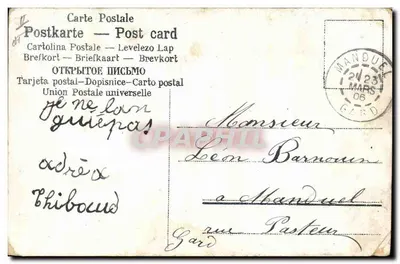 Carte Postale
Postkarte — Post card
Cartolina Postale – Levelezo Lap
Brefkort – Briefkaart – Brevkort
ОТКРЫТОЕ ПИСЬМО
Tarjeta postal–Dopisnice–Carto postal
Union Postale universelle
MANDUEL
23
MARS
06
GARD
je ne
Monsieur
Léon Barnouin
à Manduel
rue Pasteur
Gard
Thibaud